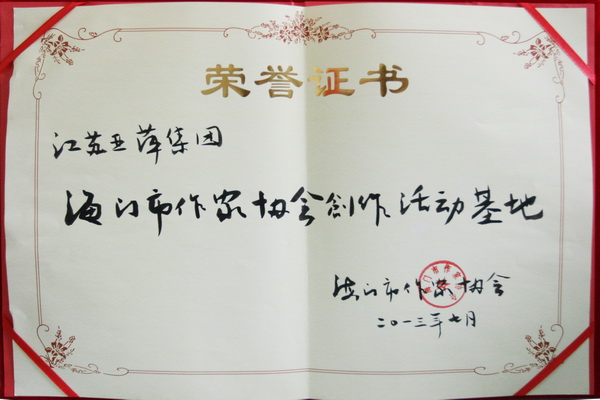 荣誉证书
江苏亚萍集团
海门市作家协会创作活动基地
海门市作家协会
二〇一三年七月